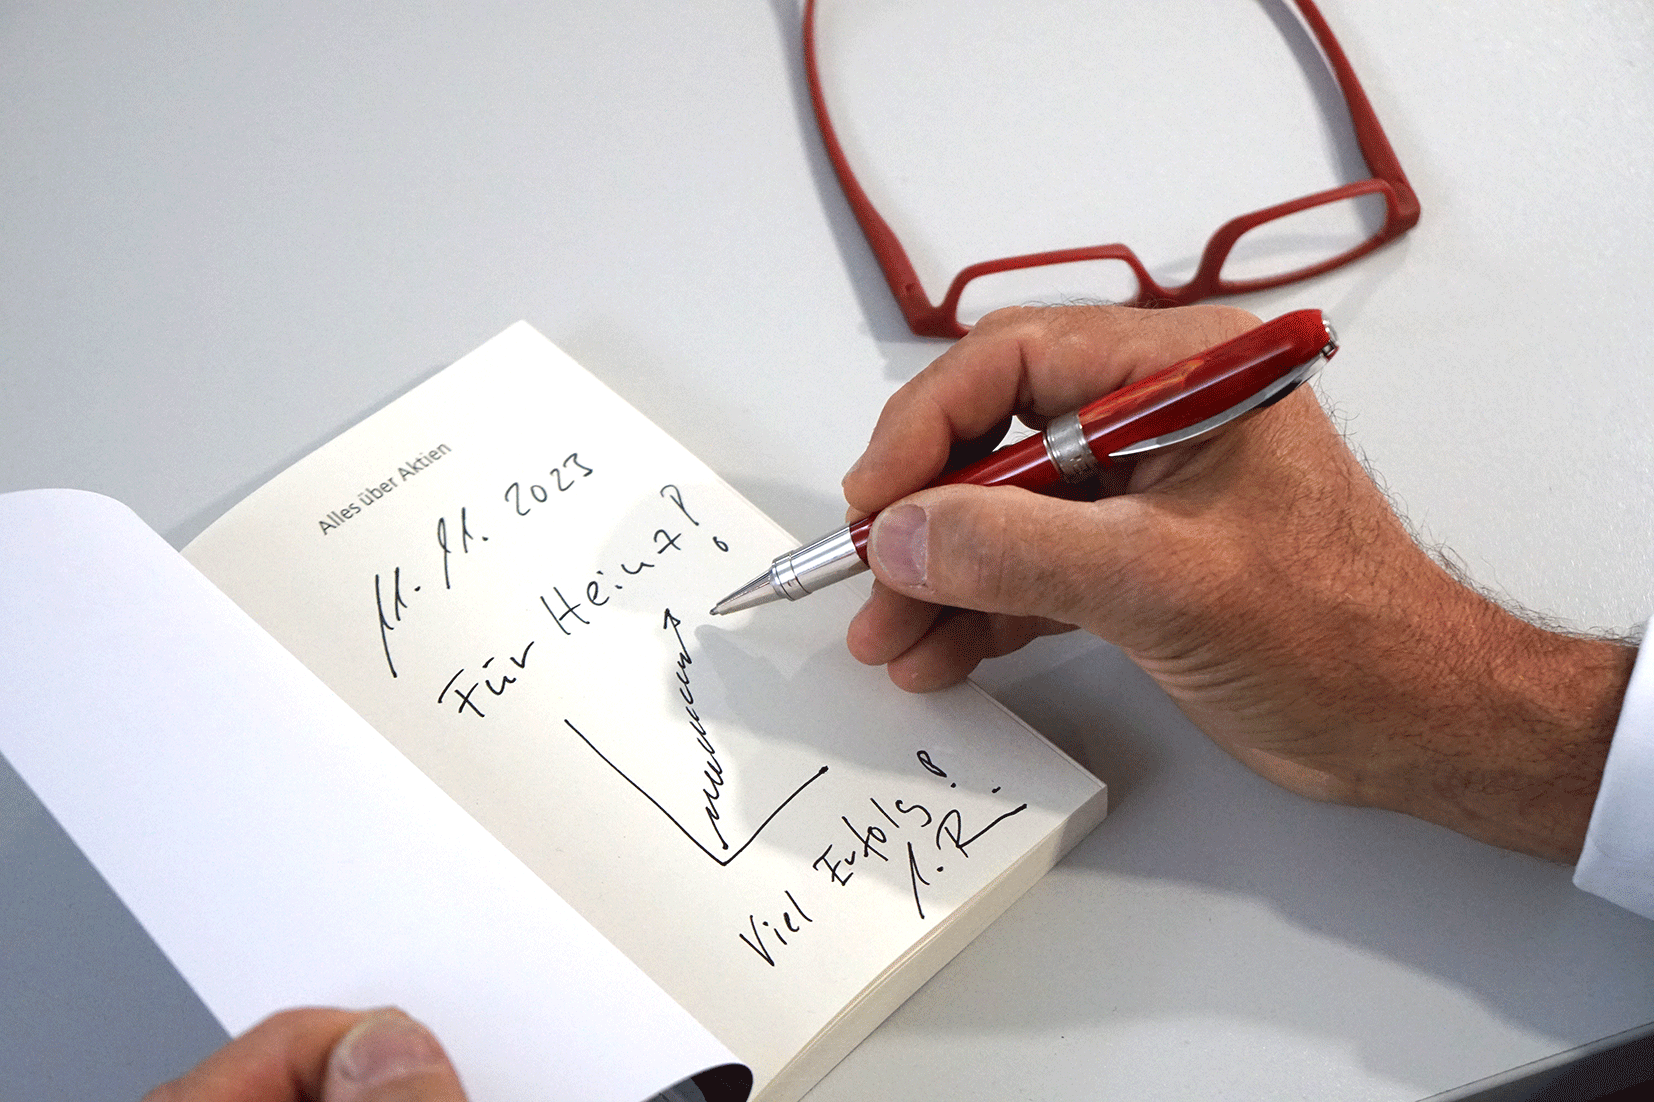 Alles über Aktien
11. 11. 2023
Für Heinz!
Viel Erfolg!
1. R.